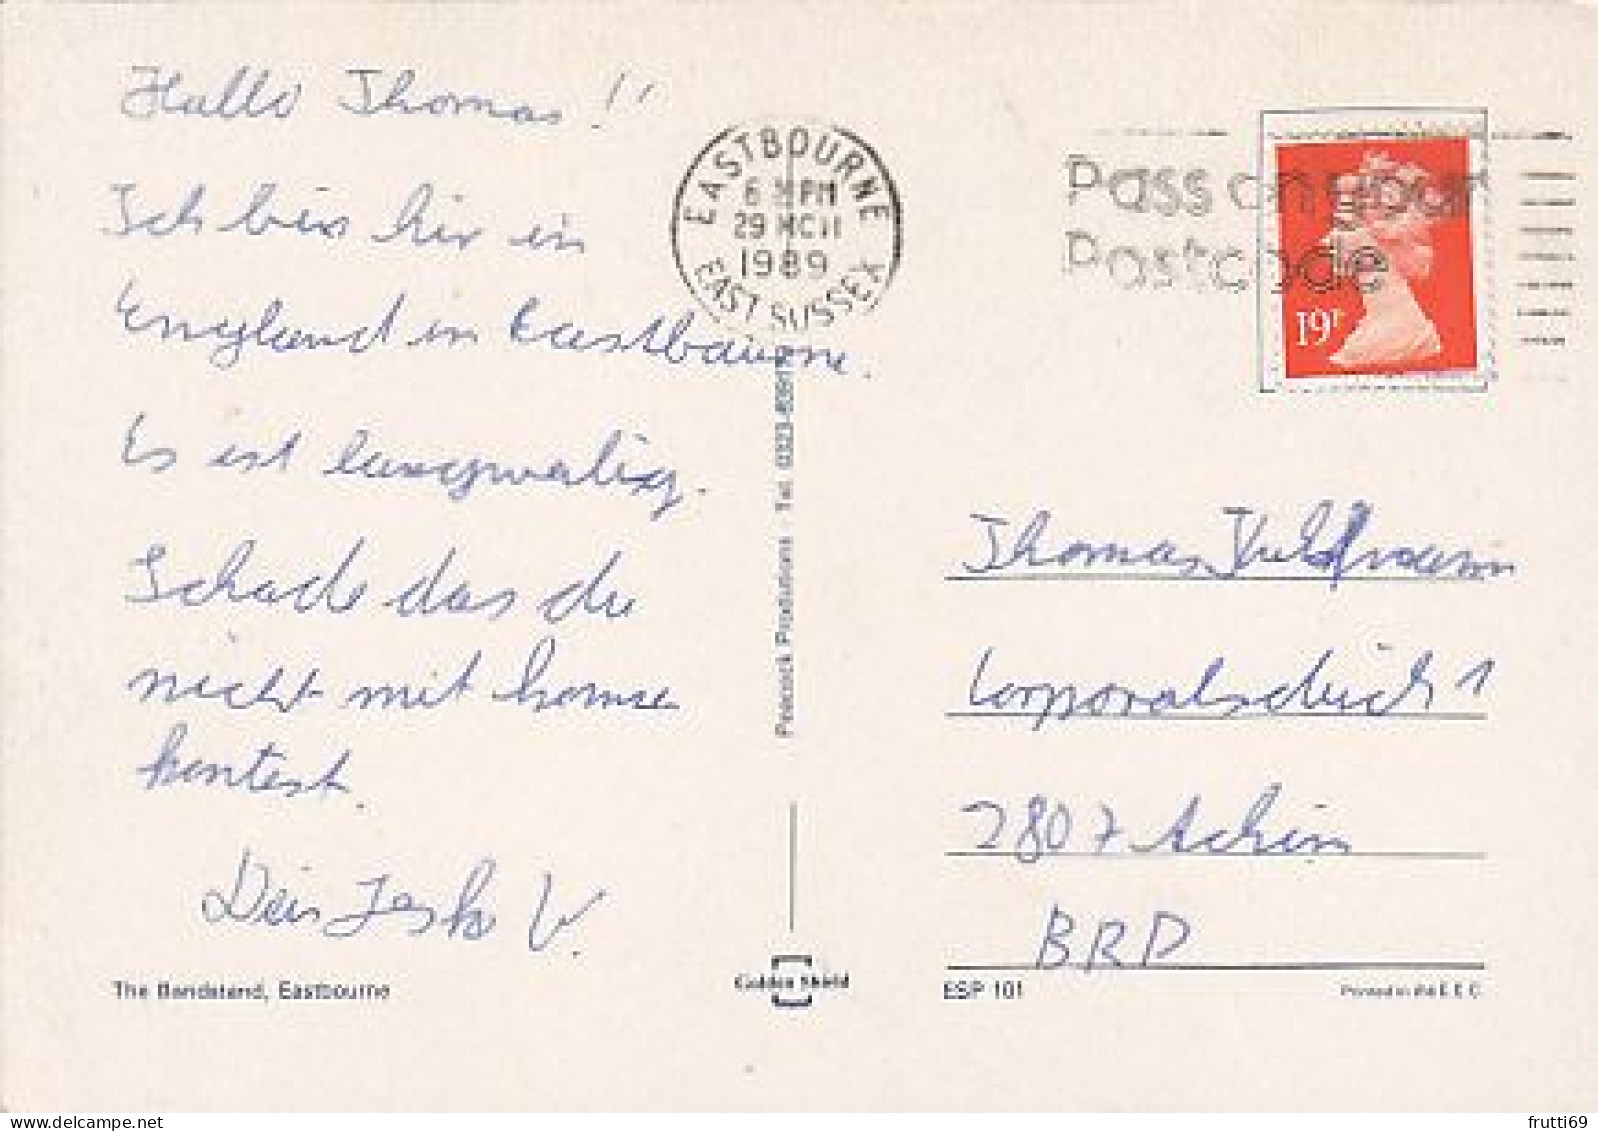 Hallo Thomas!!
Ich bin hir in
England in Eastbaurne.
Es ist langwalig.
Schade das du
nicht mit komse
kontest.
Dein V.
The Bandstand, Eastbourne
EASTBOURNE
6 PM
29 MCH
1989
EAST SUSSEX
Peacock Productions Tel. 0323
Golden Shield
Pass on your
Postcode
19P
Thomas
Corporalschick 1
2807 Achim
BRD
ESP 101
Printed in the E.E.C.
frutti69